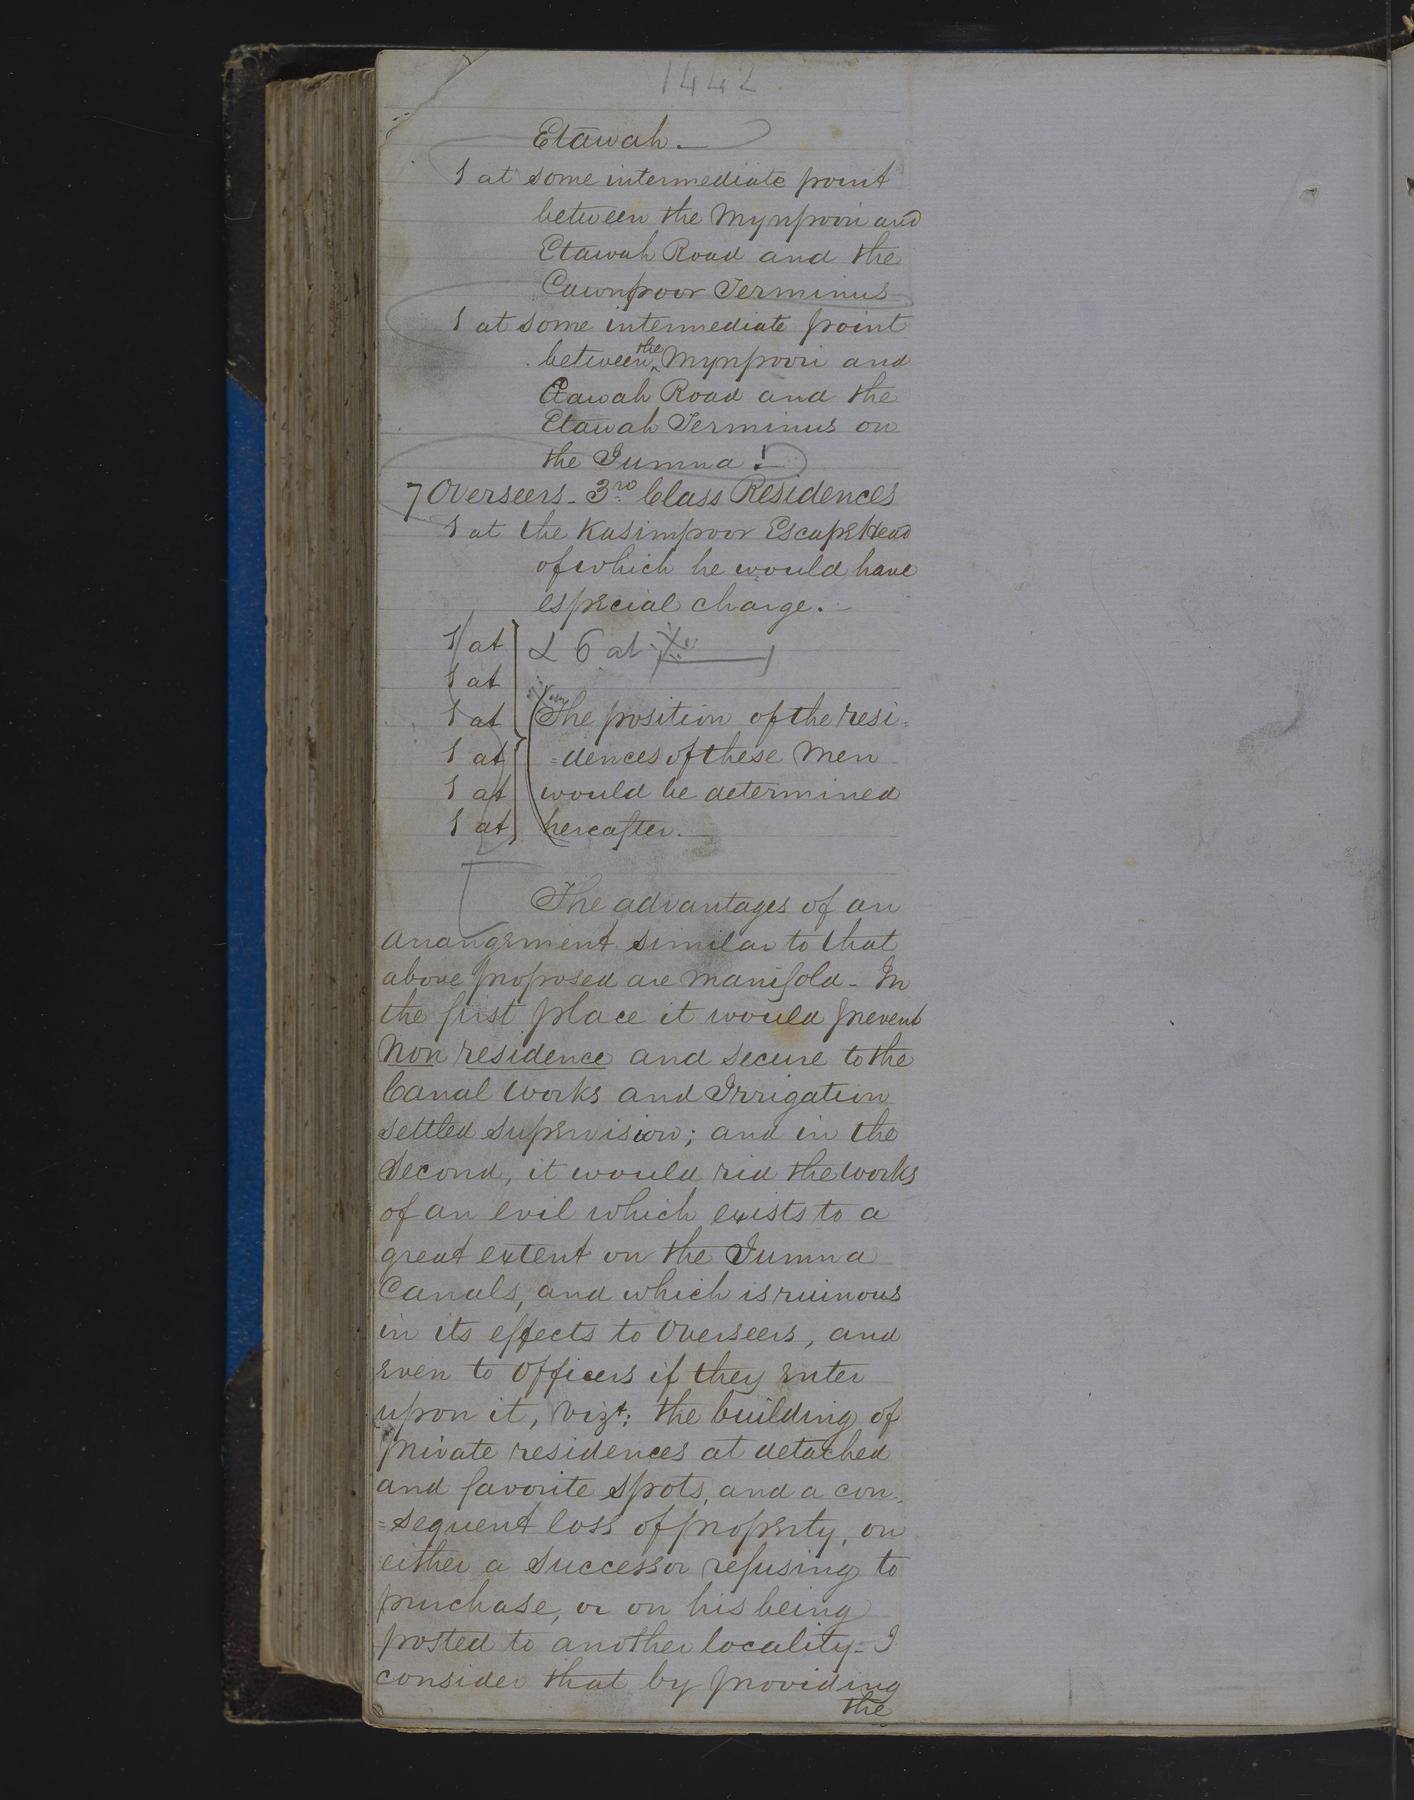 1442
Etawah.—
1 at some intermediate point
between the Mynpoori and
Etawah Road and the
Cawnpoor Terminus
1 at some intermediate point
between the Mynpoori and
Etawah Road and the
Etawah Terminus on
the Jumna!
7 Overseers - 3rd Class Residences
1 at the Kasimpoor Escape Head
of which he would have
especial charge.
1 at & 6 at
1 at
1 at The position of the resi=
1 at =dences of these men
1 at would be determined
1 at hereafter.—
The advantages of an
arrangement similar to that
above proposed are manifold - In
the first place it would prevent
Non residence and secure to the
Canal Works and Irrigation
settled supervision; and in the
second, it would rid the works
of an evil which exists to a
great extent on the Jumna
Canals, and which is ruinous
in its effects to Overseers, and
even to Officers if they enter
upon it, vizt: the building of
private residences at detached
and favorite spots, and a con=
=sequent loss of property, on
either a successor refusing to
purchase, or on his being
posted to another locality - I
consider that by providing
the